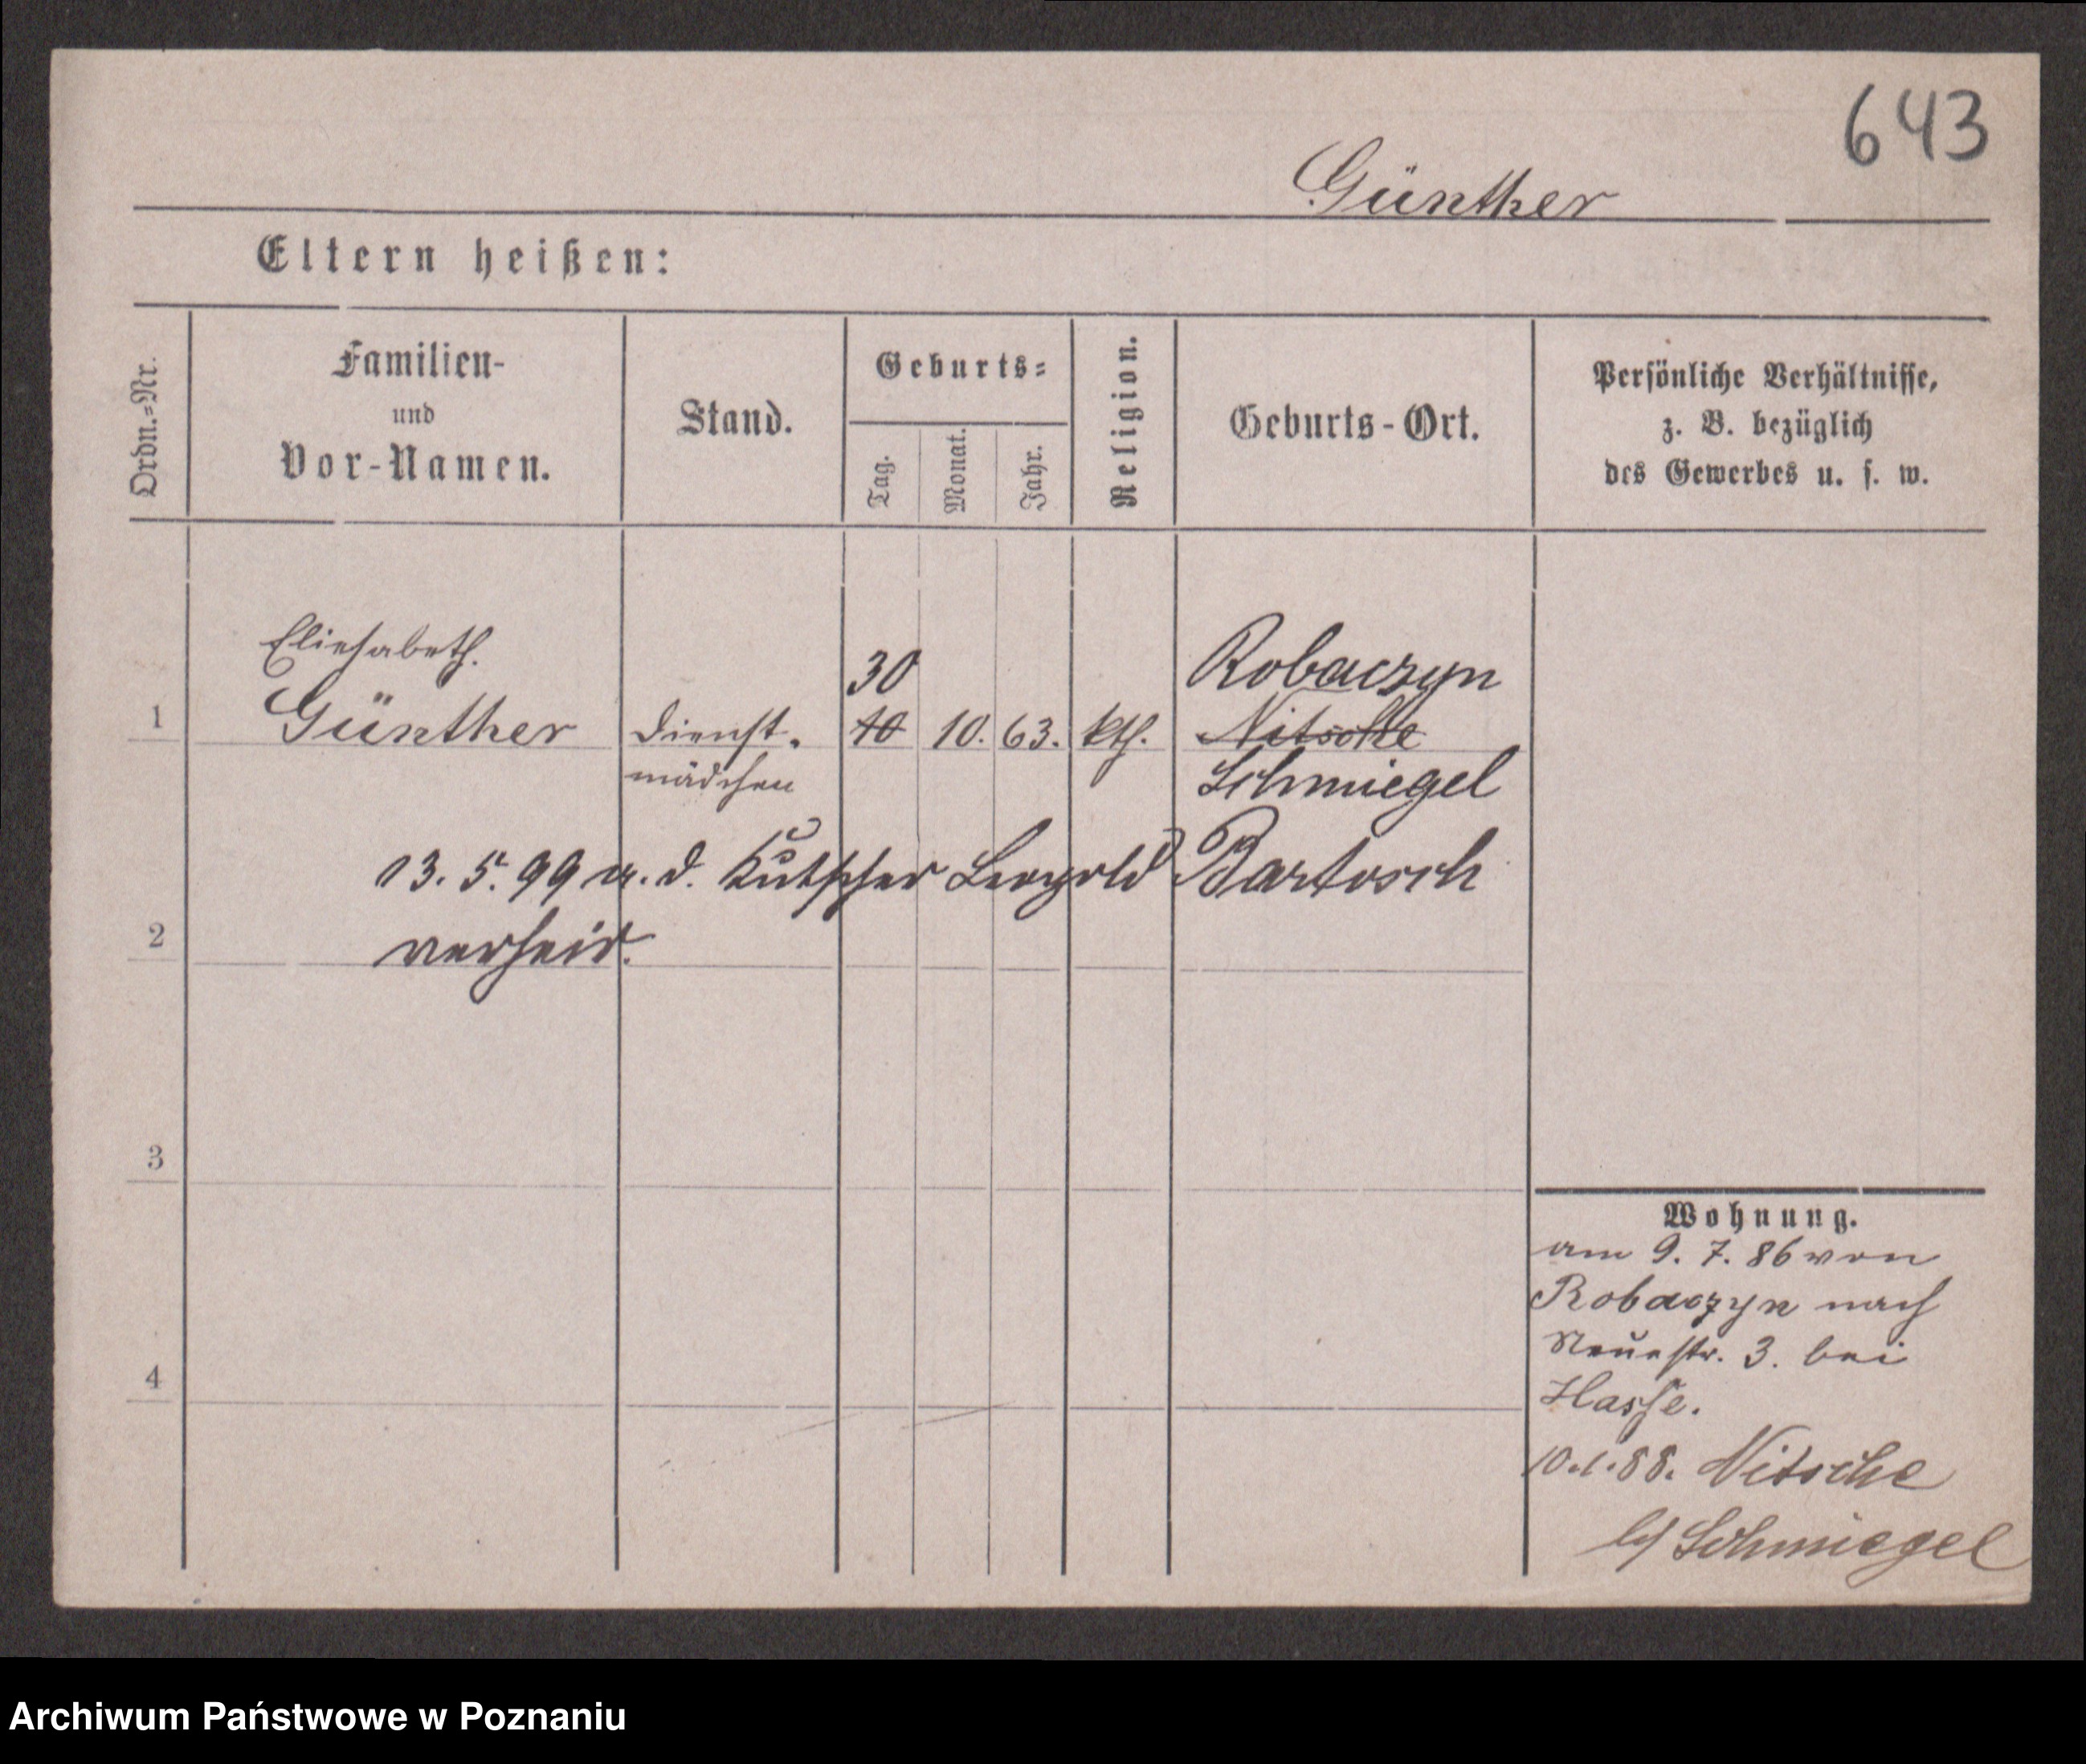 643
Günther
Eltern heißen:
Ordn.=Nr.
Familien-
und
Vor-Namen.
Stand.
Geburts=
Tag.
Monat.
Jahr.
Religion.
Geburts-Ort.
Persönliche Verhältnisse,
z. B. bezüglich
des Gewerbes u. s. w.
Eliesabeth.
30
Robaczyn
1 Günther Dienst- 10 10. 63. kth. Nitsche
mädchen Schmiegel
13. 5. 99 a. d. Kutscher Leopold Bartosch
2 verheir.
3
4
Wohnung.
am 9. 7. 86 von
Robaczyn nach
Neuestr. 3. bei
Hasse.
10.1.88. Nitsche
b/ Schmiegel
Archiwum Państwowe w Poznaniu